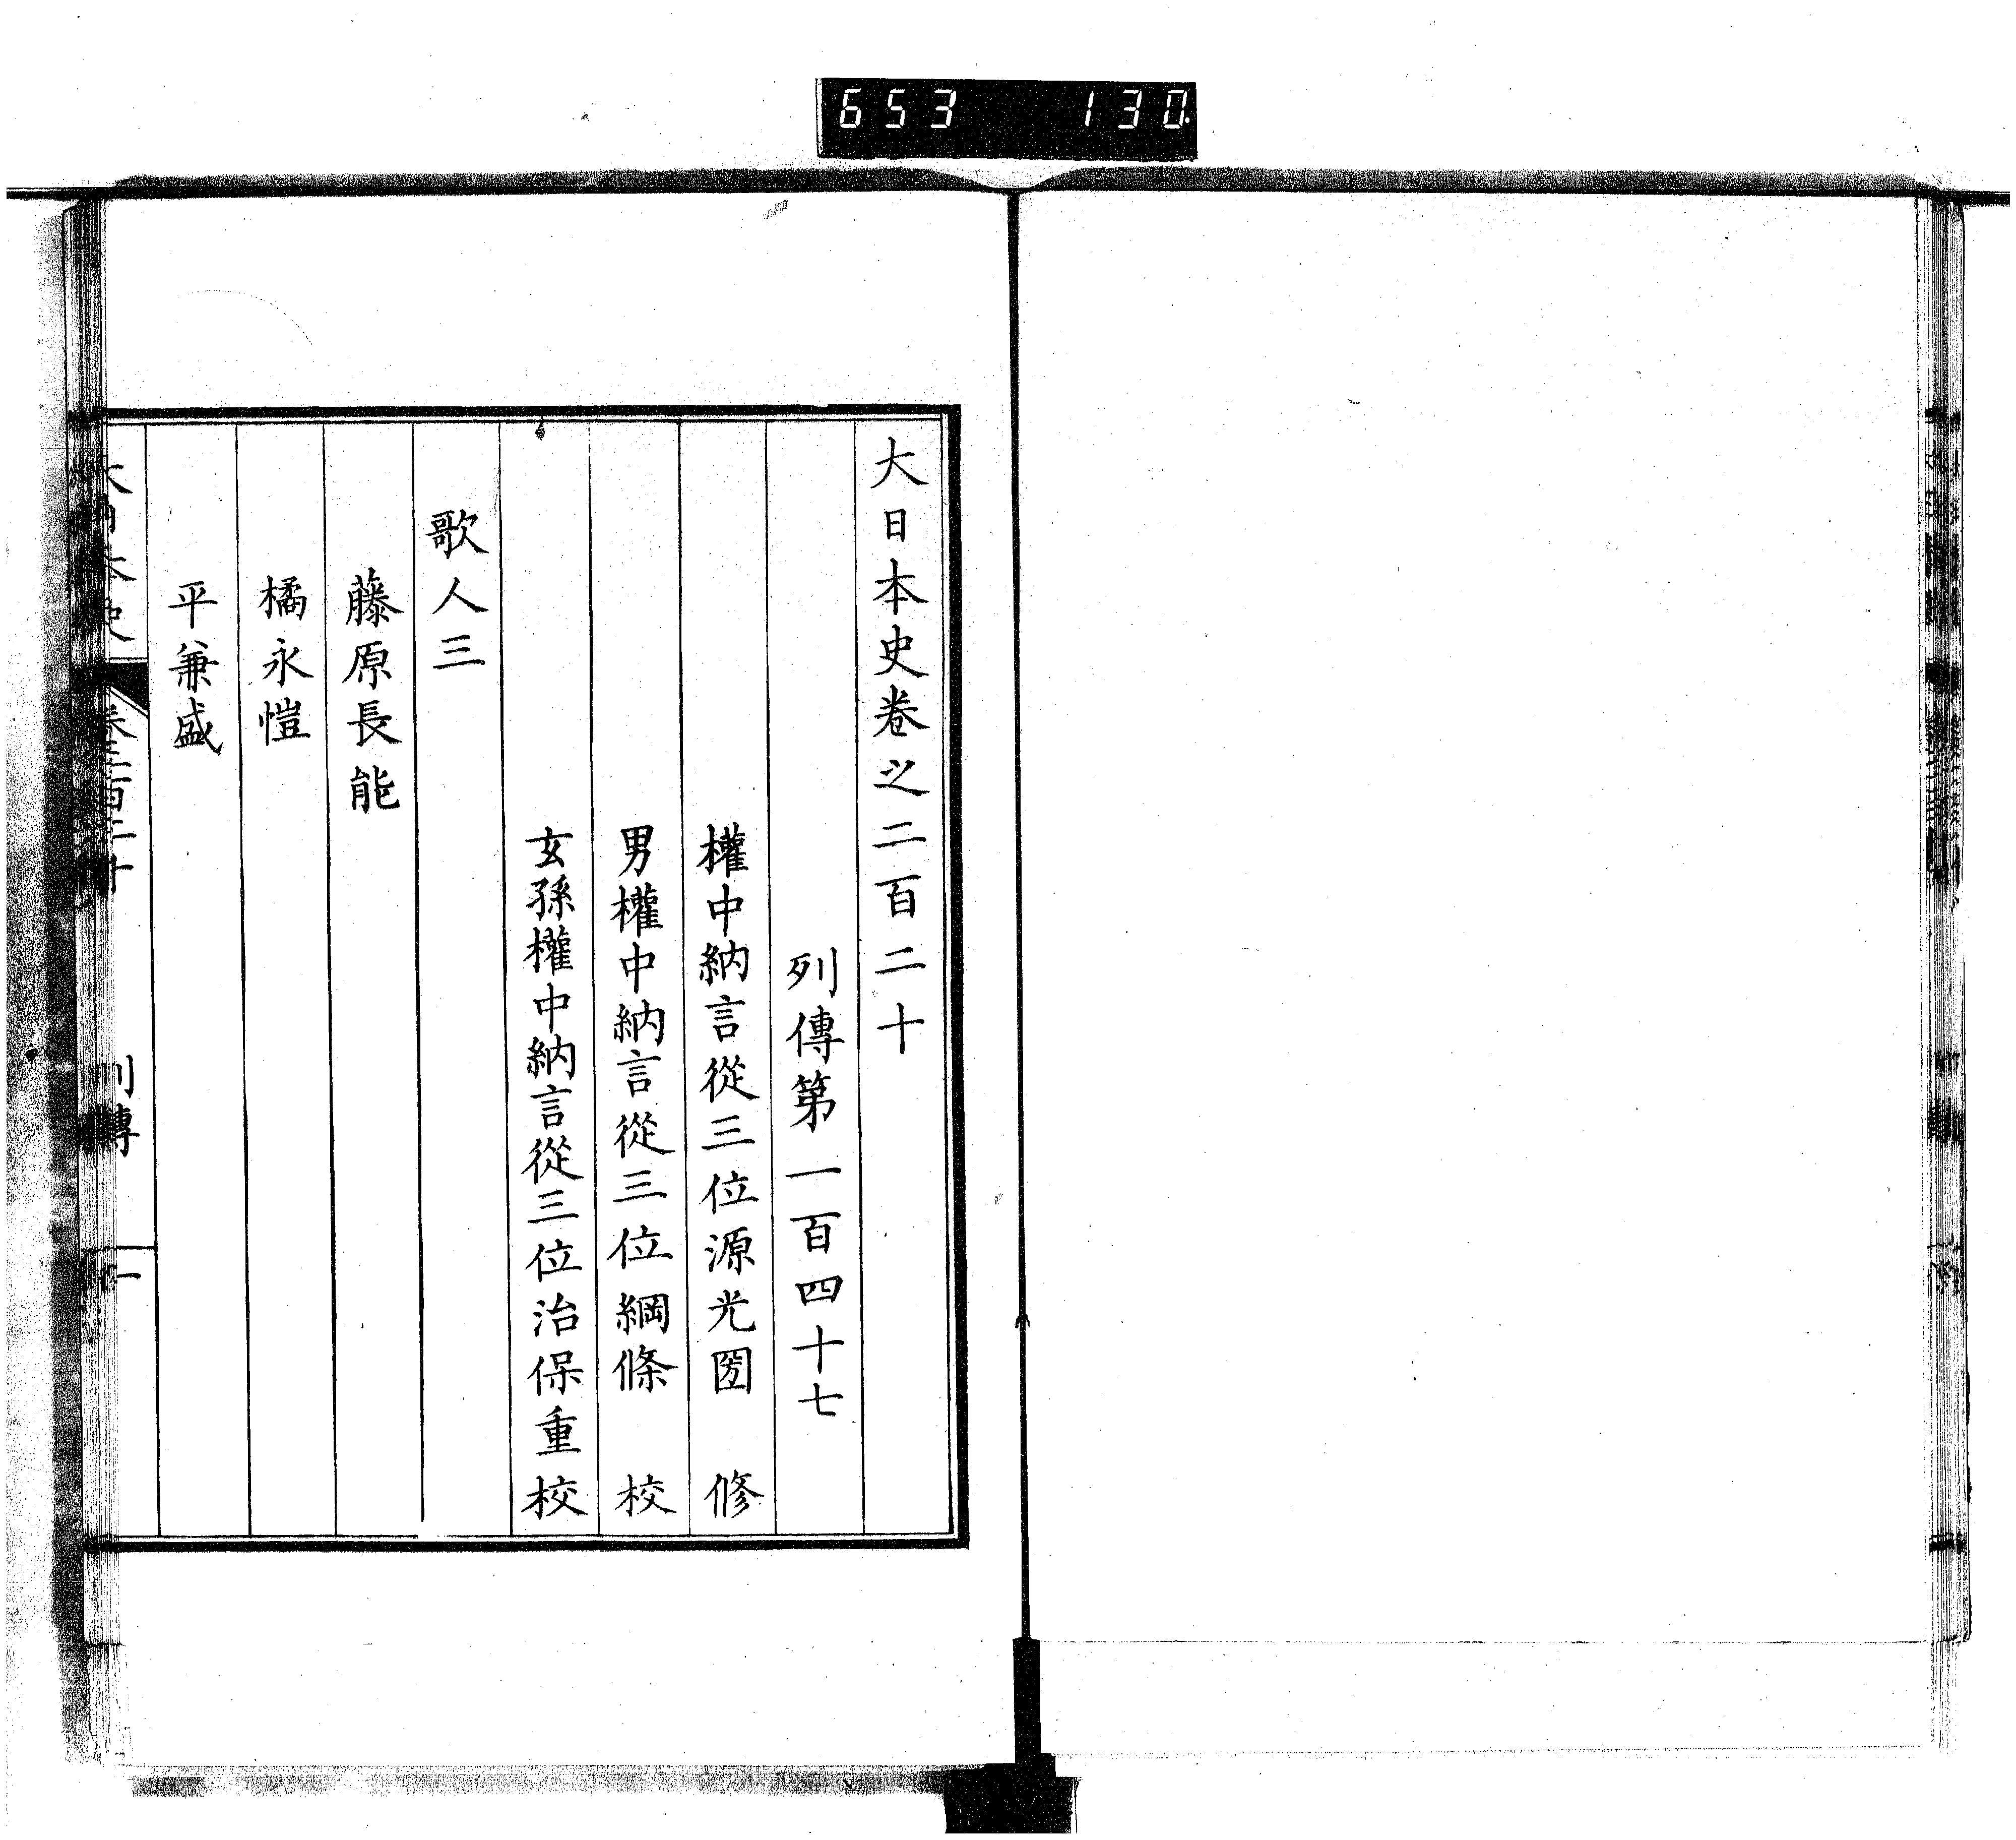 653 130
大日本史卷之二百二十
列傳第一百四十七
權中納言從三位源光圀 修
男權中納言從三位綱條 校
玄孫權中納言從三位治保重校
歌人三
藤原長能
橘永愷
平兼盛
大日本史 卷二百二十 列傳 一